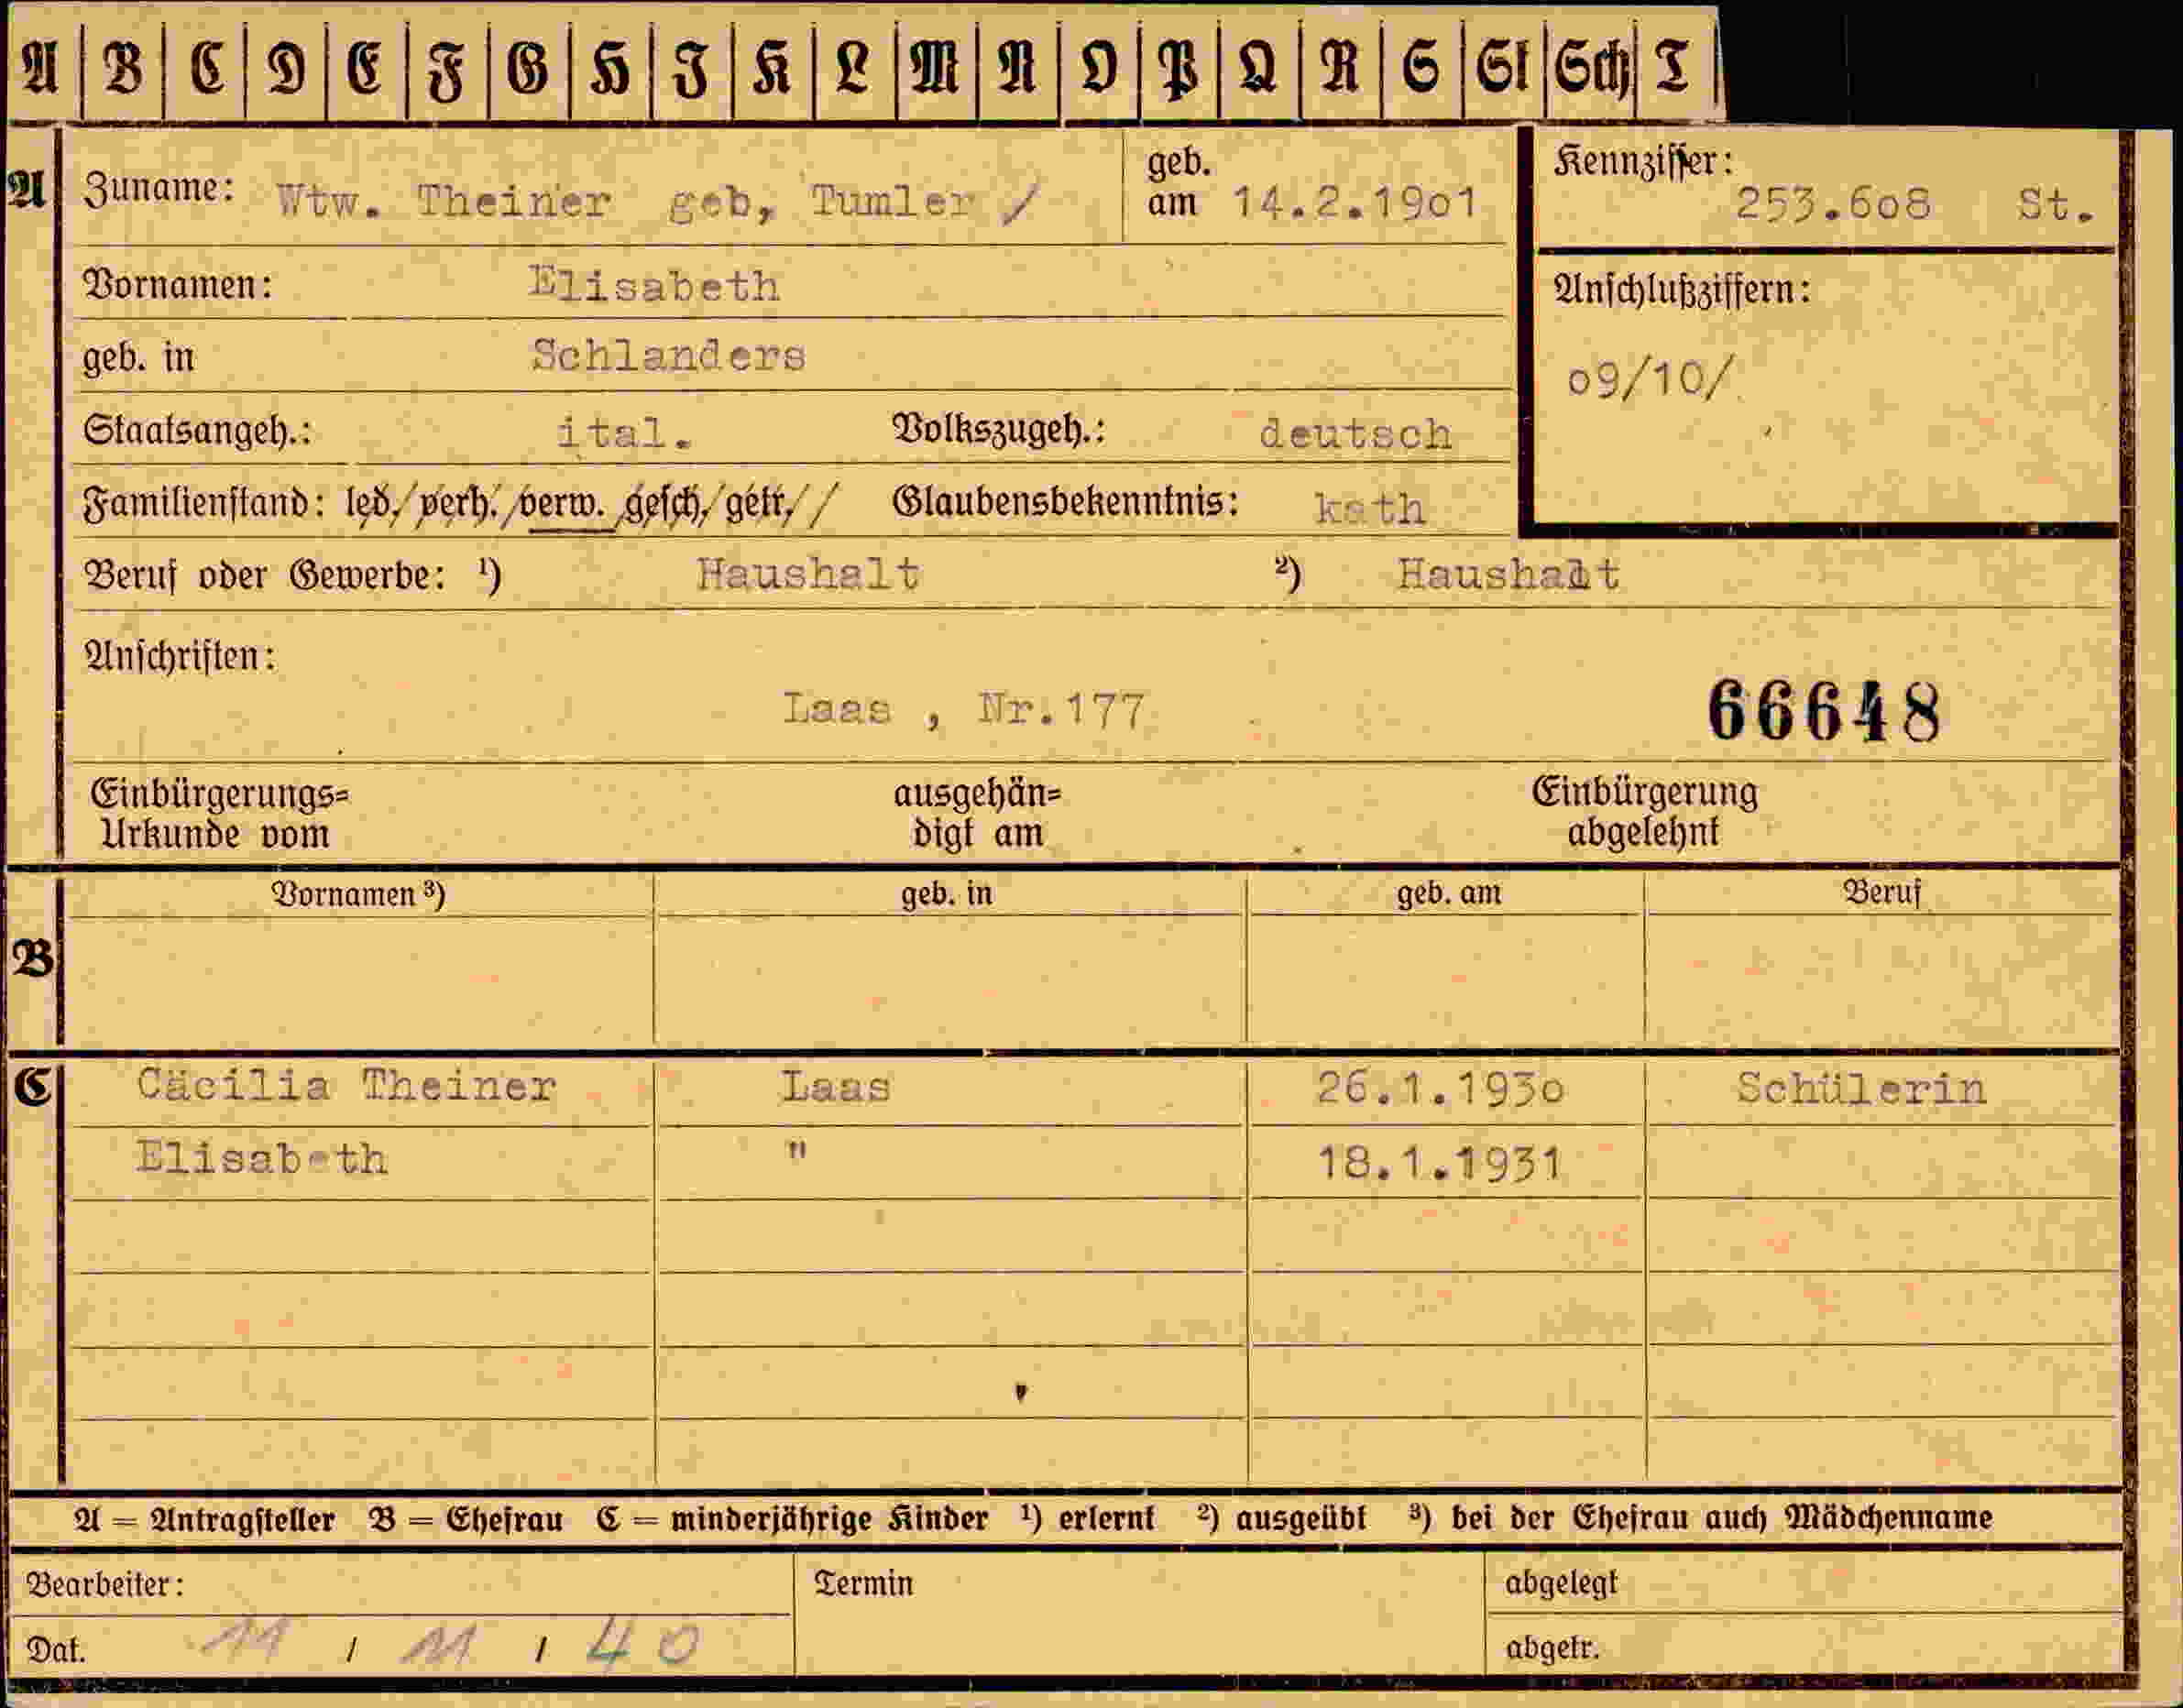 A B C D E F G H I K L M N O P Q R S St Sch T
A Zuname: Wtw. Theiner geb, Tumler / geb. am 14.2.19o1 Kennziffer: 253.6o8 St.
Vornamen: Elisabeth
Anschlußziffern:
geb. in Schlanders
o9/10/
Staatsangeh.: ital. Volkszugeh.: deutsch
Familienstand: led./verh./verw. gesch/getr,// Glaubensbekenntnis: kath
Beruf oder Gewerbe: ¹) Haushalt ²) Haushalt
Anschriften:
Laas , Nr.177
66648
Einbürgerungs= ausgehän= Einbürgerung
Urkunde vom digt am abgelehnt
Vornamen ³) geb. in geb. am Beruf
B
C Cäcilia Theiner Laas 26.1.193o Schülerin
Elisabeth " 18.1.1931
A = Antragsteller B = Ehefrau C = minderjährige Kinder ¹) erlernt ²) ausgeübt ³) bei der Ehefrau auch Mädchenname
Bearbeiter: Termin abgelegt
Dat. 11 / 11 / 40 abgetr.